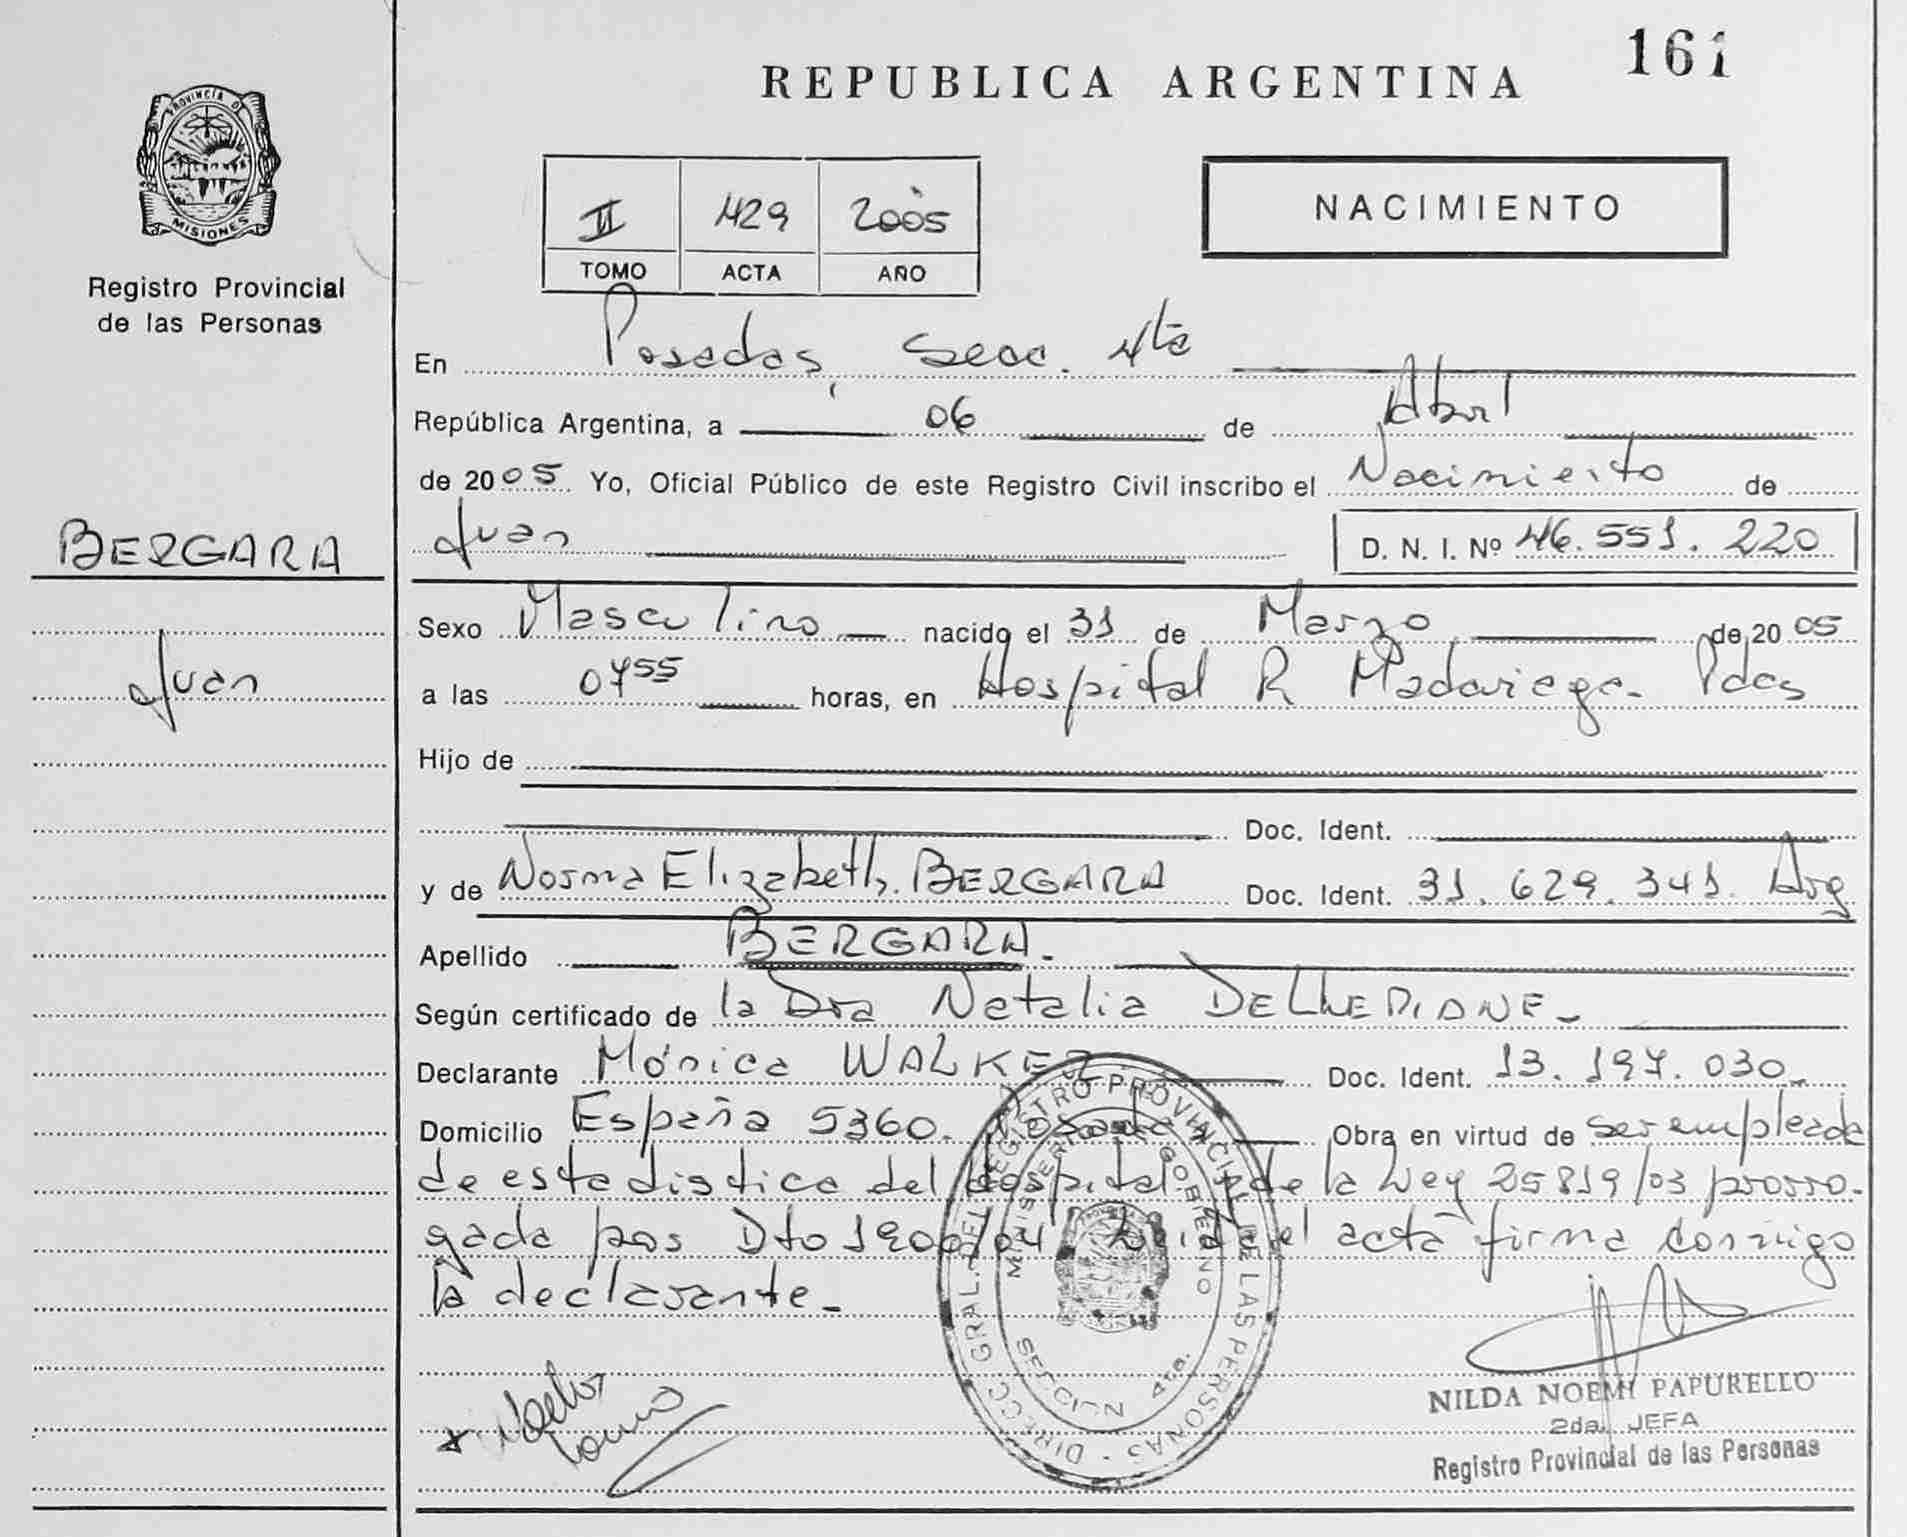 161
REPUBLICA ARGENTINA
PROVINCIA DE
MISIONES
Registro Provincial
de las Personas
NACIMIENTO
II 429 2005
TOMO ACTA AÑO
En Posadas, Secc. 4ta
República Argentina, a 06 de Abril
de 2005 Yo, Oficial Público de este Registro Civil inscribo el Nacimiento de
Juan D. N. I. Nº 46.551.220
BERGARA
Juan
Sexo Masculino nacido el 31 de Marzo de 2005
a las 0755 horas, en Hospital R Madariaga. Pdas
Hijo de
Doc. Ident.
y de Norma Elizabeth. BERGARA Doc. Ident. 31.629.341. Arg
Apellido BERGARA.
Según certificado de la Dra Natalia
Declarante Mónica WALKER Doc. Ident. 13.197.030.
Domicilio España 5360. Posadas Obra en virtud de ser empleada
de estadistica del Hospital y de la Ley 25819/03 prorro-
gada por Dto 1900/04 Leida el acta firma conmigo
la declarante.
DIRECC. GRAL. DEL REGISTRO PROVINCIAL DE LAS PERSONAS
MINISTERIO DE GOBIERNO
SECCION 4ta.
NILDA NOEMI PAPURELLO
2da. JEFA
Registro Provincial de las Personas